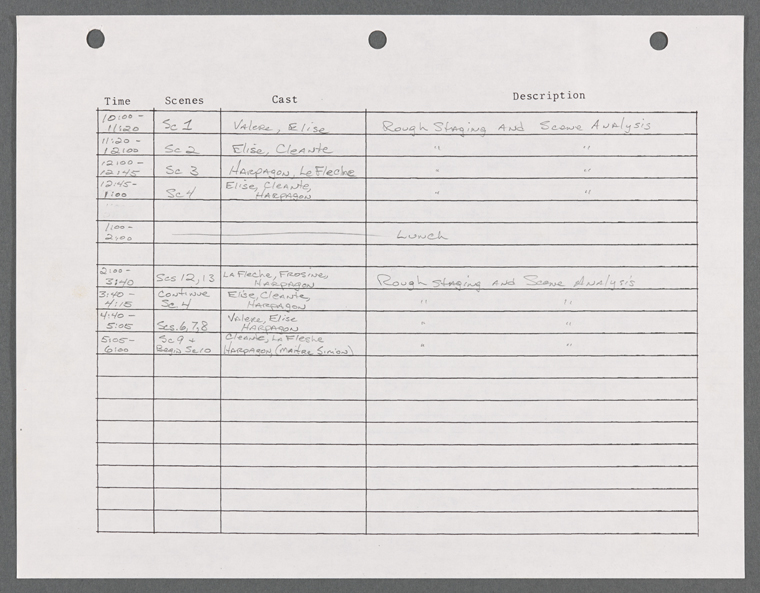 Time Scenes Cast Description
10:00 -
11:20 Sc 1 Valere, Elise Rough Staging And Scene Analysis
11:20 -
12:00 Sc 2 Elise, Cleante " "
12:00 -
12:45 Sc 3 Harpagon, La Fleche " "
12:45 - Elise, Cleante,
1:00 Sc 4 Harpagon " "
1:00 -
2:00 Lunch
2:00 - La Fleche, Frosine,
3:40 Scs 12, 13 Harpagon Rough Staging and Scene Analysis
3:40 - Continue Elise, Cleante,
4:15 Sc. 4 Harpagon " "
4:40 - Valere, Elise
5:05 Scs. 6, 7, 8 Harpagon " "
5:05 - Sc 9 + Cleante, La Fleche
6:00 Begin Sc 10 Harpagon, (Maitre Simon) " "